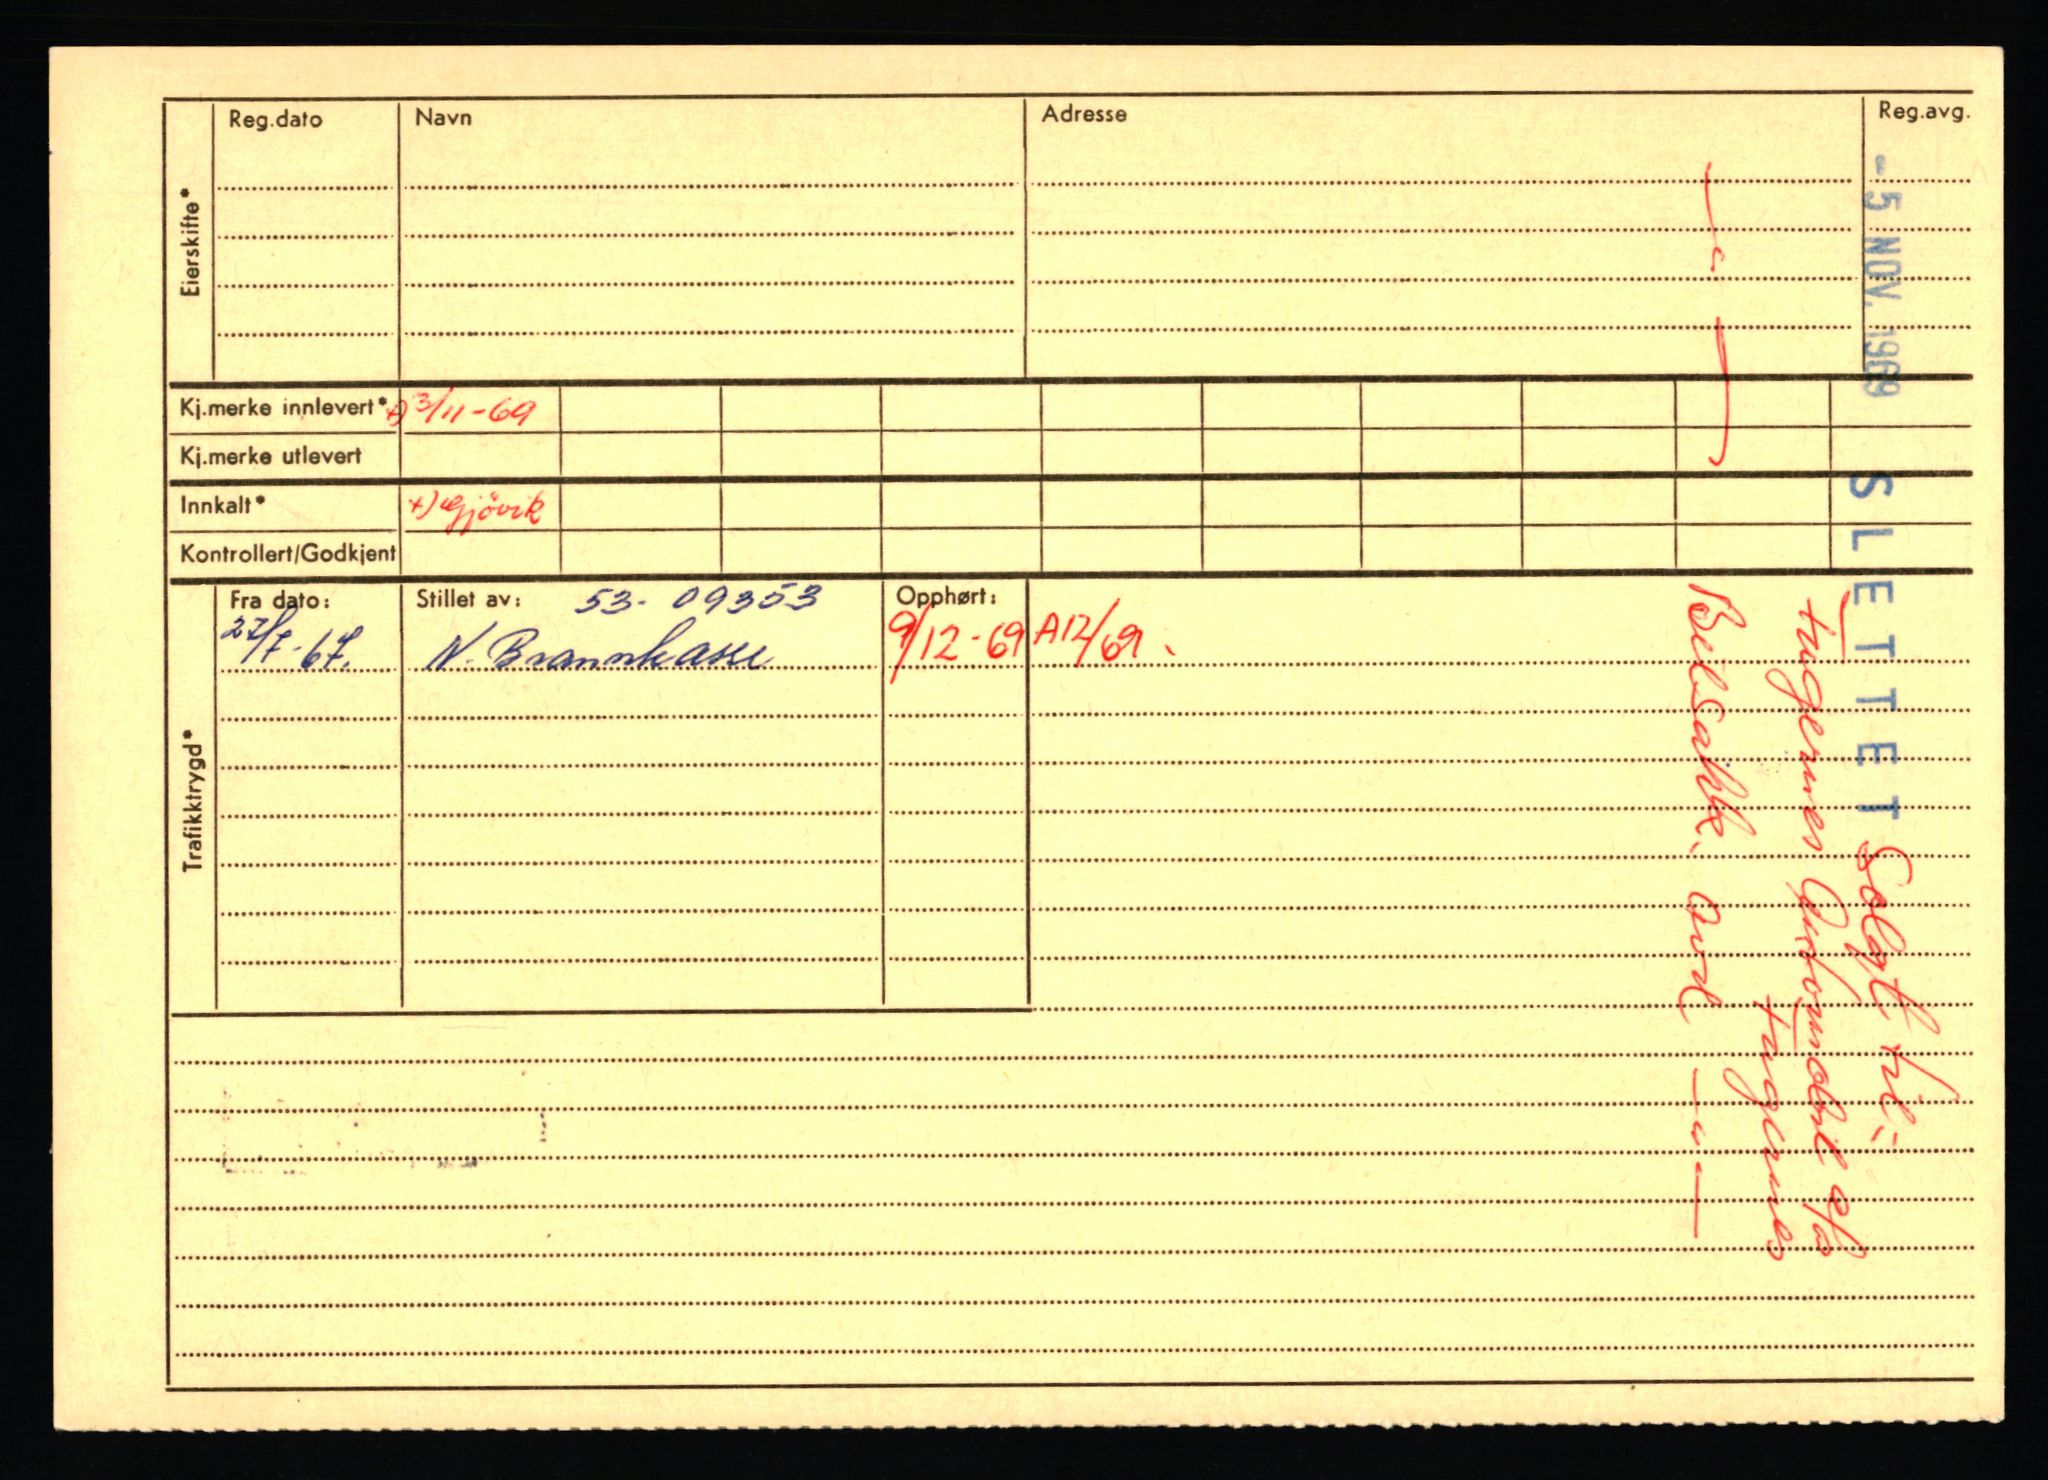 Reg.dato Navn Adresse Reg.avg.
Eierskifte*
Kj.merke innlevert* +) 3/11-69
Kj.merke utlevert
Innkalt* +) Gjövik
Kontrollert/Godkjent
Trafikktrygd*
Fra dato: Stillet av: 53-09353 Opphørt:
27/7-67. N. Brannkasse 9/12-69 A12/69.
-5 NOV. 1969 SLETTET
Solgt til: